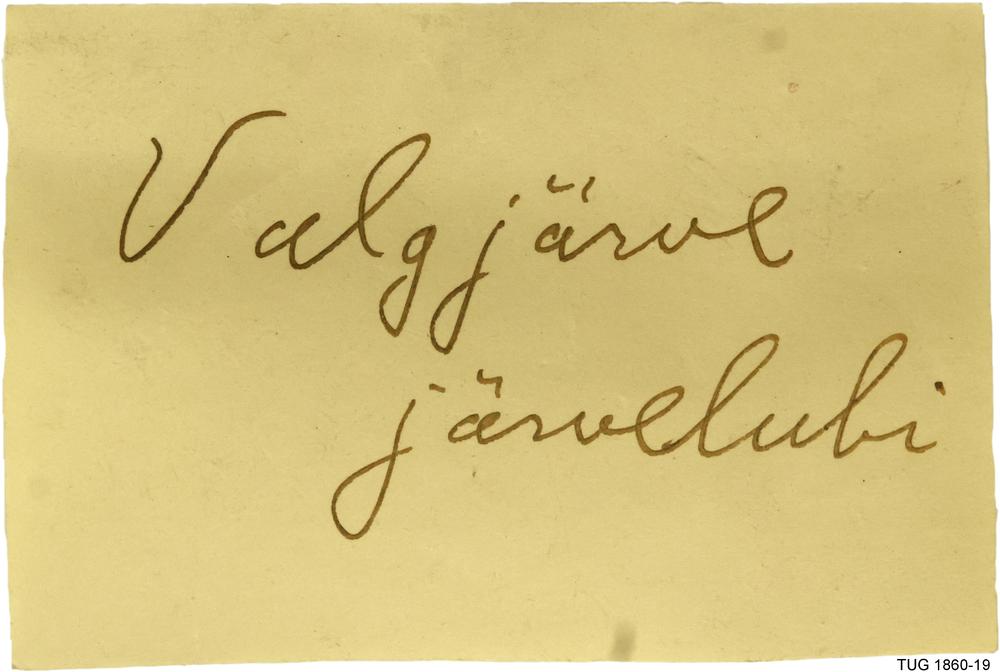 Valgjärve
järvelubi
TUG 1860-19